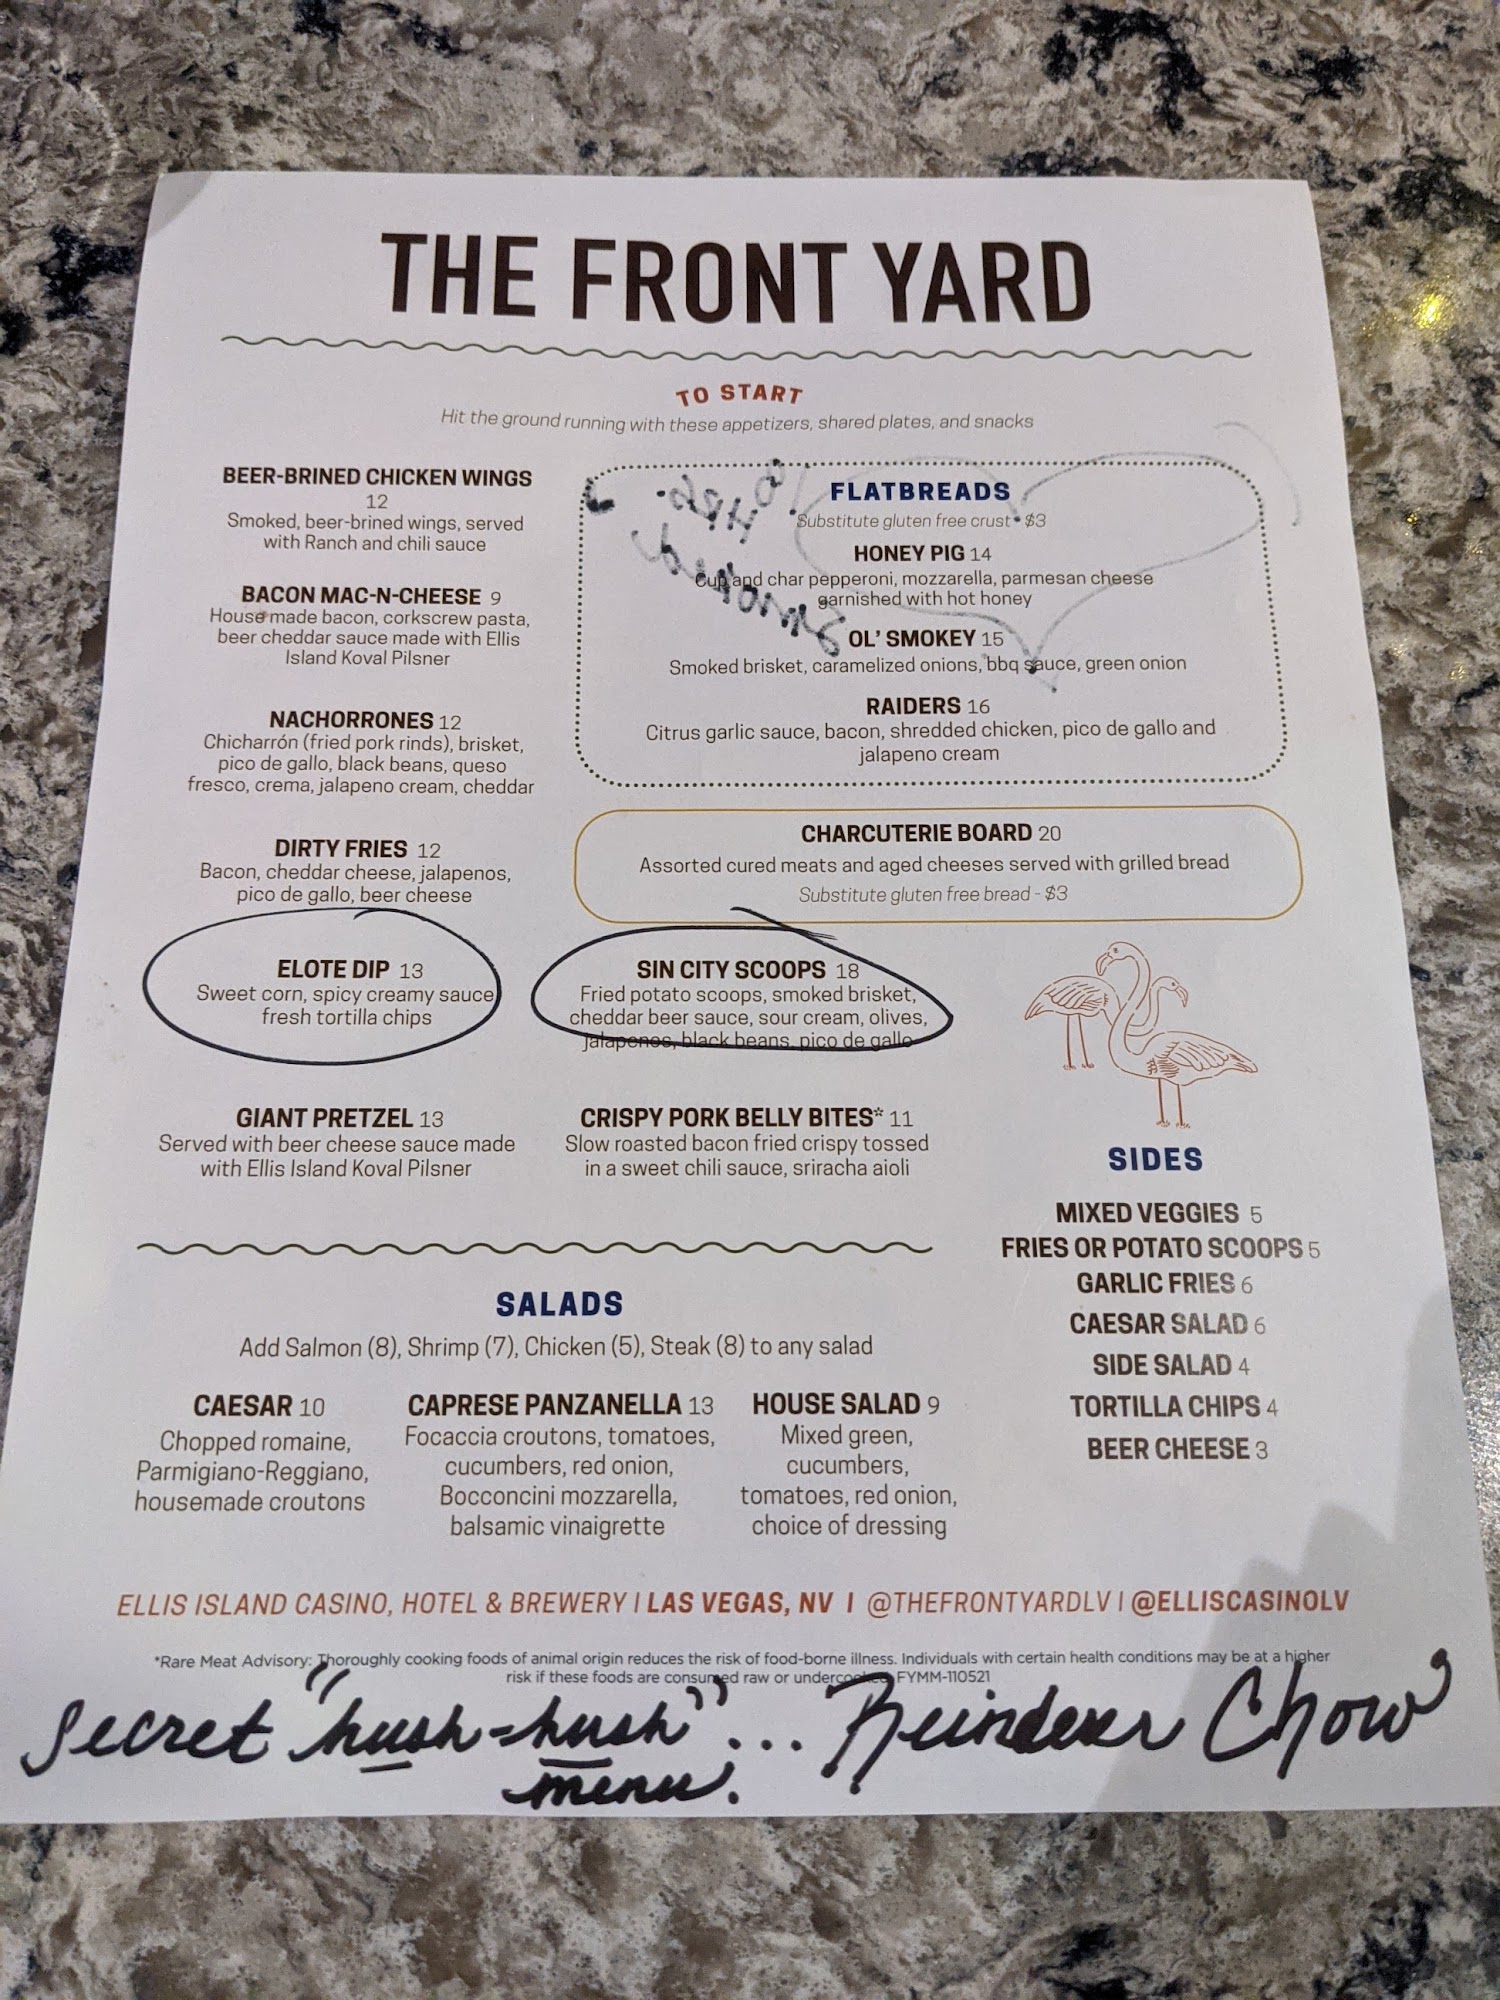 THE FRONT YARD
TO START
Hit the ground running with these appetizers, shared plates, and snacks
BEER-BRINED CHICKEN WINGS
12
Smoked, beer-brined wings, served
with Ranch and chili sauce
BACON MAC-N-CHEESE 9
House made bacon, corkscrew pasta,
beer cheddar sauce made with Ellis
Island Koval Pilsner
NACHORRONES 12
Chicharrón (fried pork rinds), brisket,
pico de gallo, black beans, queso
fresco, crema, jalapeno cream, cheddar
DIRTY FRIES 12
Bacon, cheddar cheese, jalapenos,
pico de gallo, beer cheese
ELOTE DIP 13
Sweet corn, spicy creamy sauce
fresh tortilla chips
GIANT PRETZEL 13
Served with beer cheese sauce made
with Ellis Island Koval Pilsner
FLATBREADS
Substitute gluten free crust - $3
HONEY PIG 14
Cup and char pepperoni, mozzarella, parmesan cheese
garnished with hot honey
OL' SMOKEY 15
Smoked brisket, caramelized onions, bbq sauce, green onion
RAIDERS 16
Citrus garlic sauce, bacon, shredded chicken, pico de gallo and
jalapeno cream
CHARCUTERIE BOARD 20
Assorted cured meats and aged cheeses served with grilled bread
Substitute gluten free bread - $3
SIN CITY SCOOPS 18
Fried potato scoops, smoked brisket,
cheddar beer sauce, sour cream, olives,
jalapenos, black beans, pico de gallo
CRISPY PORK BELLY BITES* 11
Slow roasted bacon fried crispy tossed
in a sweet chili sauce, sriracha aioli
SIDES
MIXED VEGGIES 5
FRIES OR POTATO SCOOPS 5
GARLIC FRIES 6
CAESAR SALAD 6
SIDE SALAD 4
TORTILLA CHIPS 4
BEER CHEESE 3
SALADS
Add Salmon (8), Shrimp (7), Chicken (5), Steak (8) to any salad
CAESAR 10
Chopped romaine,
Parmigiano-Reggiano,
housemade croutons
CAPRESE PANZANELLA 13
Focaccia croutons, tomatoes,
cucumbers, red onion,
Bocconcini mozzarella,
balsamic vinaigrette
HOUSE SALAD 9
Mixed green,
cucumbers,
tomatoes, red onion,
choice of dressing
ELLIS ISLAND CASINO, HOTEL & BREWERY | LAS VEGAS, NV | @THEFRONTYARDLV | @ELLISCASINOLV
*Rare Meat Advisory: Thoroughly cooking foods of animal origin reduces the risk of food-borne illness. Individuals with certain health conditions may be at a higher
risk if these foods are consumed raw or undercooked. FYMM-110521
Secret "hush-hush" ... Reindeer Chow
menu.